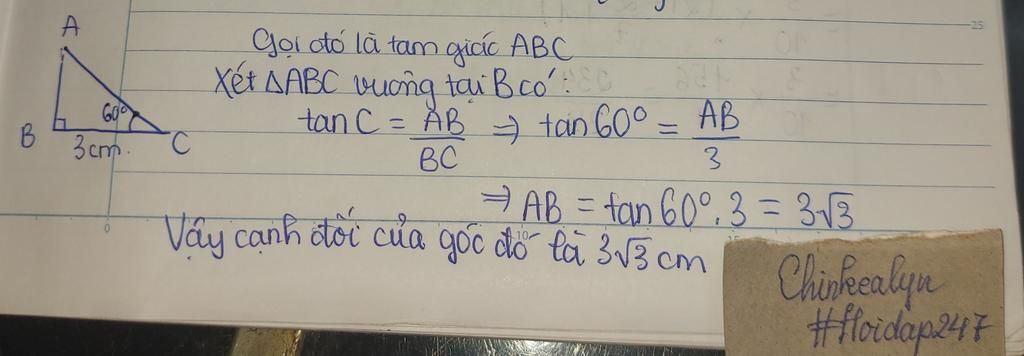 A
60°
B
3cm.
C
Gọi đó là tam giác ABC
Xét ΔABC vuông tại B có:
tan C = AB/BC ⇒ tan 60° = AB/3
⇒ AB = tan 60°. 3 = 3√3
Vậy cạnh đối của góc đó là 3√3 cm
25
0
10
15
Chinkealyn
#Hoidap247